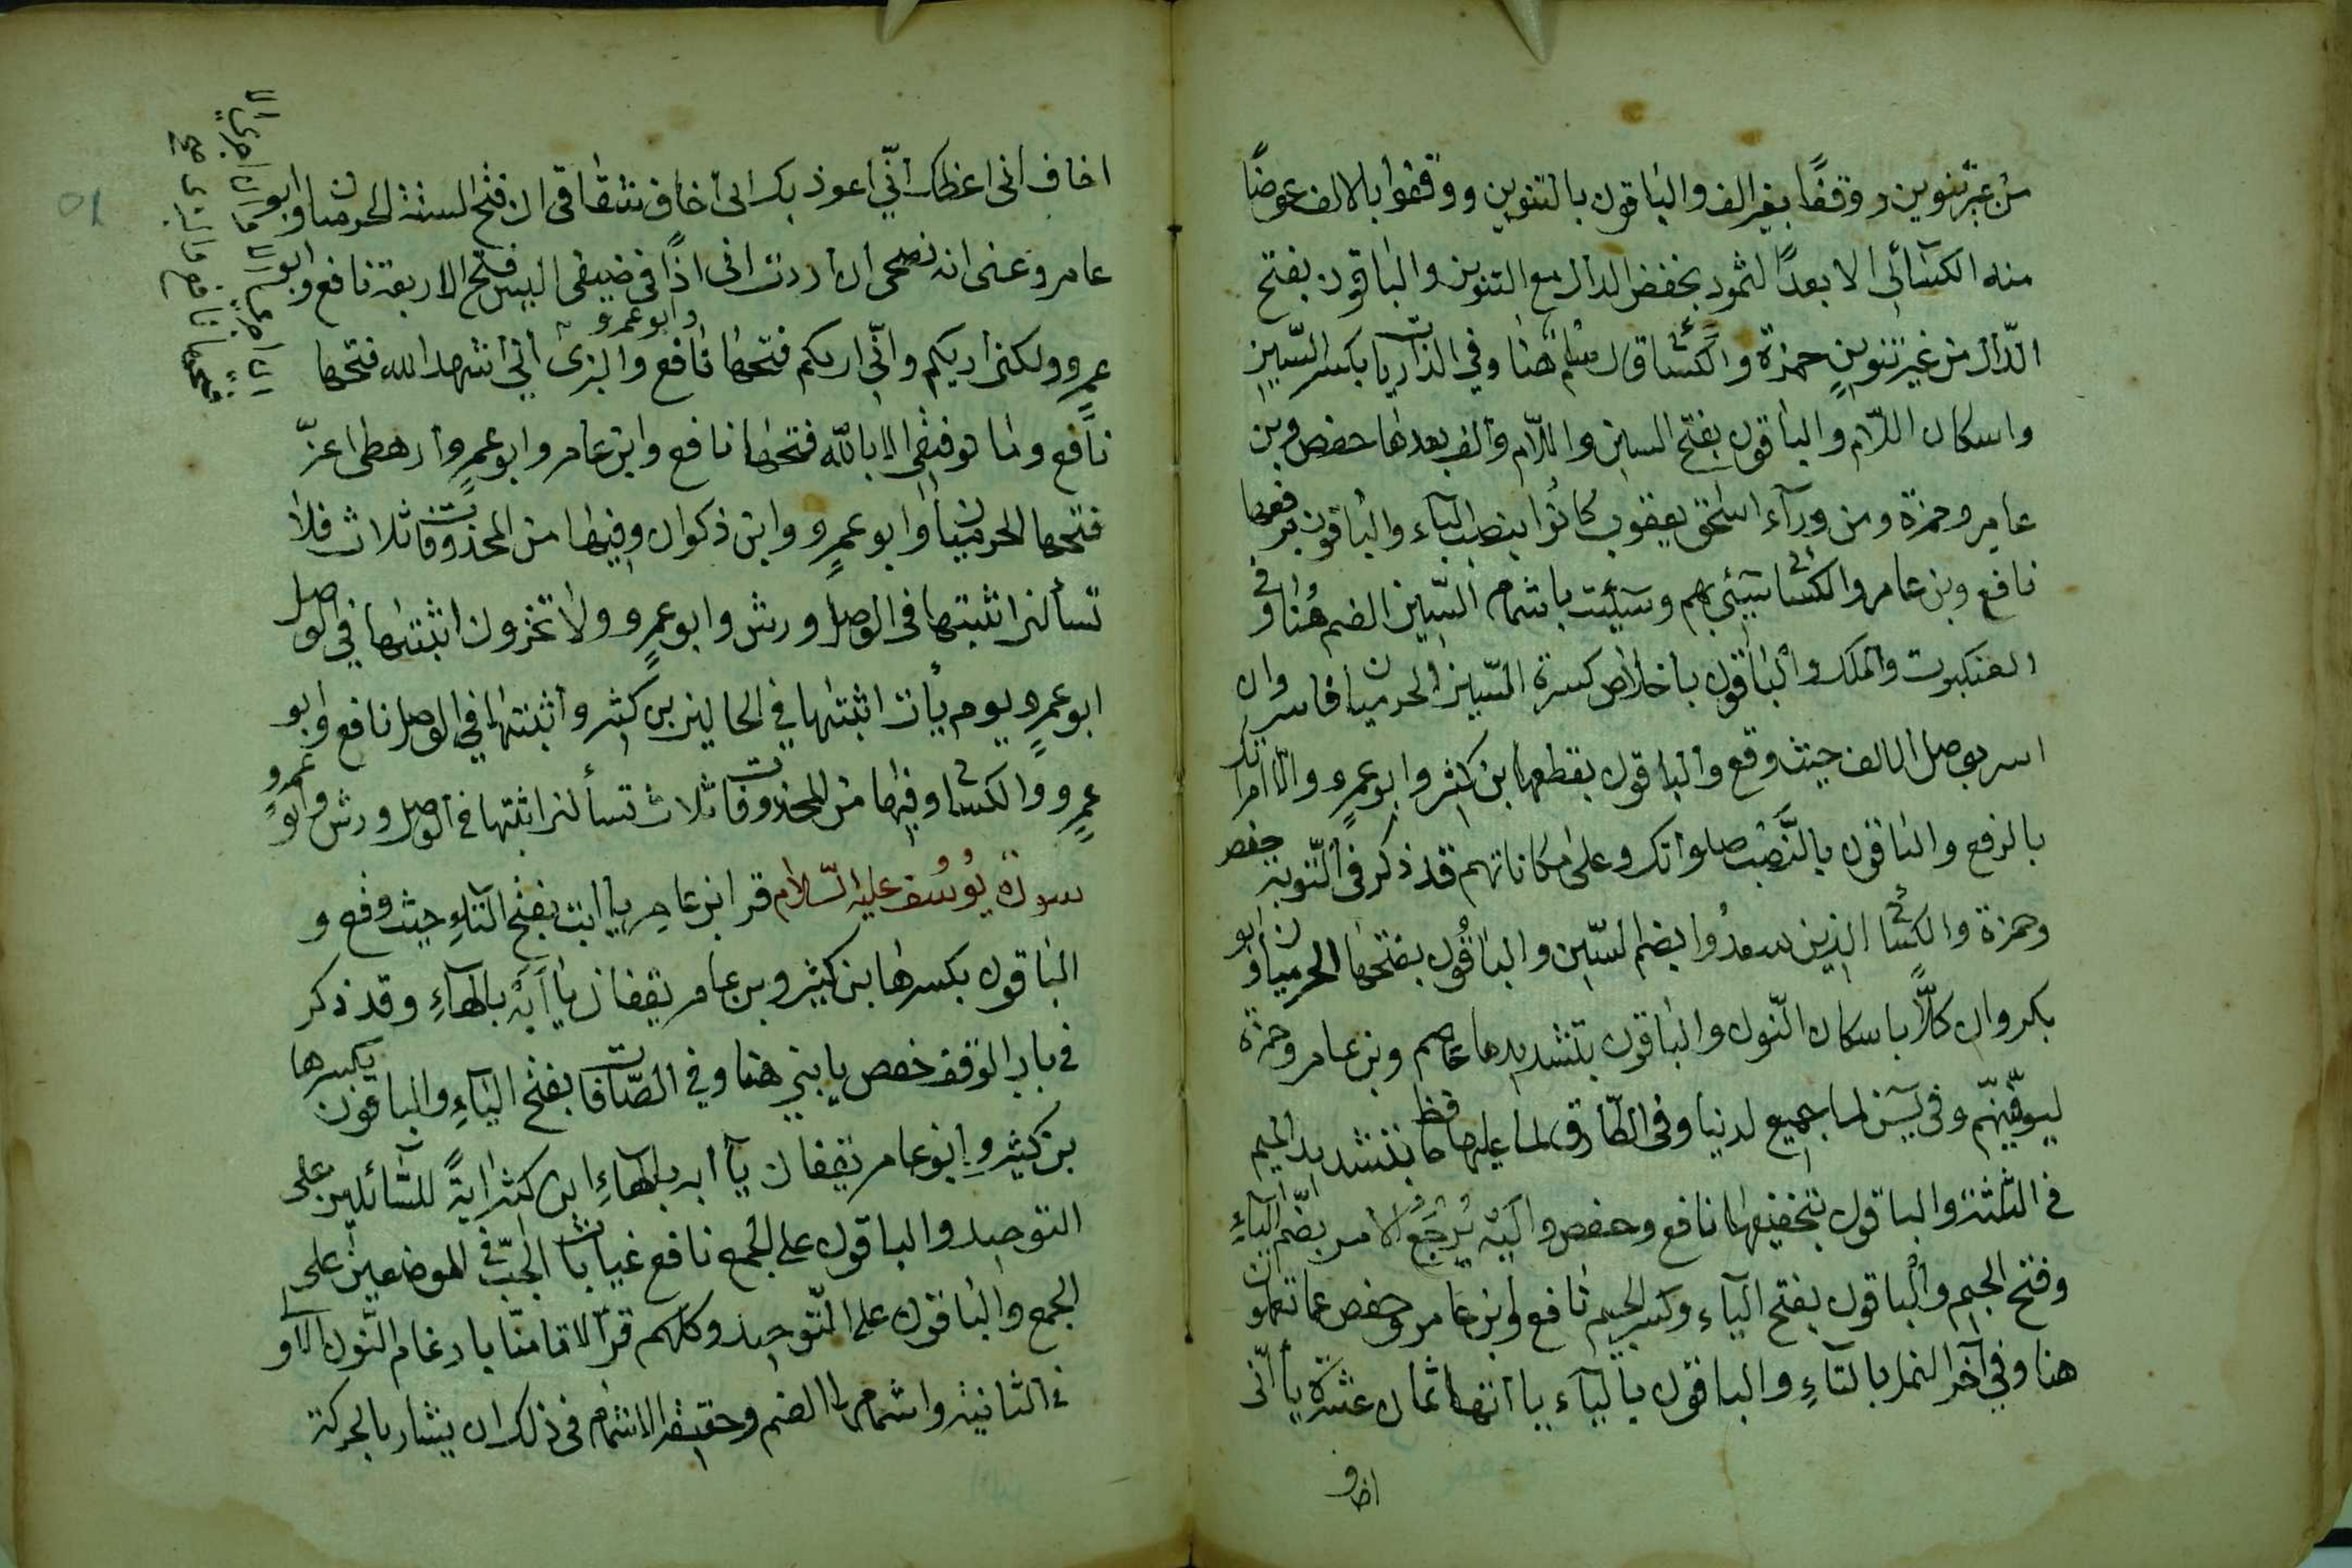 من غير تنوين ووقفًا بغير الف والباقون بالتنوين ووقفوا بالالف عوضًا
منه الكسائى الا بعدًا لثمود بخفض الدال مع التنوين والباقون بفتح
الدّال من غير تنوين حمزة والكسائى قال سلم هنا وفي الذاريات بكسر السّين
واسكان اللّام والباقون بفتح السين واللّام والف بعدها حفص وبن
عامر وحمزة ومن ورآء اسحٰق يعقوب كانوا بنصب البآء والباقون برفعها
نافع وبن عامر والكسائى سيئ بهم وسيئت باشمام السّين الضم هُنا وفى
العنكبوت والملك والباقون باخلاص كسرة السّين الحرميان فاسر وان
اسر بوصل الالف حيث وقع والباقون بقطعها بن كثير وابو عمرٍو والّا امراتك
بالرفع والباقون بالنَّصْب صلوٰتك وعلى مكاناتهم قد ذكر فى التّوبة حفص
وحمزة والكسائى الذين سعدُوا بضم السّين والباقُون بفتحها الحرميان وابو
بكر وان كلًّا باسكان النّون والباقون بتشديدها عاصم وبن عامر وحمزة
ليوفّينّهم وفى يسٓن لما جميع لدينا وفى الطّارق لما عليها حافظ بتشديد الميم
فى الثلثة والباقون بتخفيفها نافع وحفص واليه يُرْجَعُ الامر بضّم اليآءِ
وفتح الجيم والباقون بفتح اليآء وكسر الجيم نافع وابن عامر وحفص عما تعملون
هنا وفي آخر النمل بالتآءِ والباقون باليآء ياآتها ثمان عشرة يا انّى
اخاف
اخاف انى اعظك انّي اعوذ بك انى اخاف شقاقى ان فتح الستة الحرميان وابو
عامر وعنى انه نصحى ان اردت انى اذًا فى ضيفى اليس فتح الاربعة نافع وابو
عمرٍو ولكنى اريكم وانّي اريكم فتحها نافع والبزى وابو عمرو انى اشهد الله فتحها
نافع وما توفيقى الا بالله فتحها نافع وابن عامر وابو عمرٍو ارهطى اعزّ
فتحها الحرميان وابو عمرٍو وابن ذكوان وفيها من المحذوفات ثلاث فلا
تسألن اثبتها فى الوصل ورش وابو عمرٍو ولا تخزون اثبتها في الوصل
ابو عمرٍو يوم يأت اثبتها في الحالين بن كثير واثبتها في الوصل نافع وابو
عمرٍو والكسائى وفيها من المحذوفات ثلاث تسألن اثبتها فى الوصل ورش وابو عمرو
سورة يُوسُف عليه السّلام قرا ابن عامر يا ابت بفتح التآءِ حيث وقع و
الباقون بكسرها بن كثير وبن عامر يقفان يا ابَهْ بالهآءِ وقد ذكر
فى باب الوقف حفص يا بني هنا وفي الصّافات بفتح اليآءِ والباقون بكسرها
بن كثير وابن عامر يقفان يآ ابه بالهآءِ ابن كثير ايةً للسّآئلين على
التوحيد والباقون على الجمع نافع غيابات الجبّ فى الموضعين على
الجمع والباقون على التّوحيد وكلهم قرا لا تامنّا بادغام النّون الاولى
فى الثانية واشمامها الضم وحقيقة الاشمام فى ذلك ان يشار بالحركة